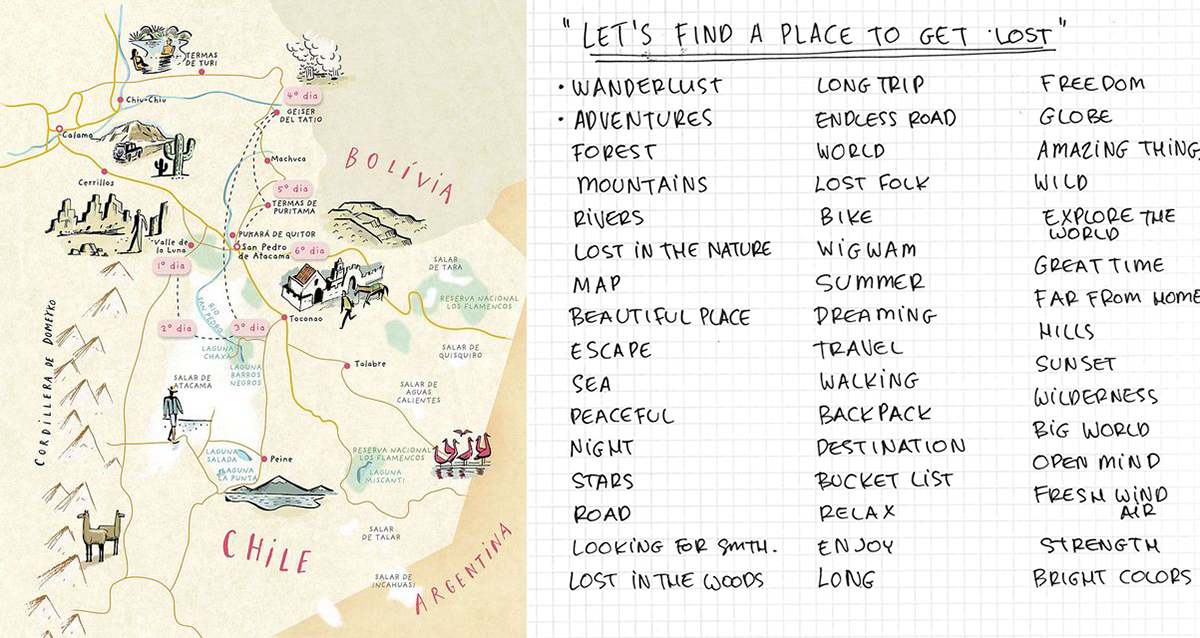 TERMAS
DE TURI
Chiu-Chiu
4º dia
GEISER
DEL TATIO
Calama
Machuca
BOLÍVIA
Cerrillos
5º dia
TERMAS DE
PURITAMA
PUKARÁ DE QUITOR
Valle de
la Luna
San Pedro
de Atacama
6º dia
1º dia
SALAR
DE TARA
RESERVA NACIONAL
LOS FLAMENCOS
CORDILLERA DE DOMEYKO
RIO
SAN PEDRO
2º dia
3º dia
Toconao
LAGUNA
CHAXA
LAGUNA
BARROS
NEGROS
SALAR DE
QUISQUIRO
Talabre
SALAR DE
ATACAMA
SALAR DE
AGUAS
CALIENTES
LAGUNA
SALADA
LAGUNA
LA PUNTA
Peine
RESERVA NACIONAL
LOS FLAMENCOS
LAGUNA
MISCANTI
SALAR
DE TALAR
CHILE
SALAR DE
INCAHUASI
ARGENTINA
"LET'S FIND A PLACE TO GET LOST"
• WANDERLUST
• ADVENTURES
FOREST
MOUNTAINS
RIVERS
LOST IN THE NATURE
MAP
BEAUTIFUL PLACE
ESCAPE
SEA
PEACEFUL
NIGHT
STARS
ROAD
LOOKING FOR SMTH.
LOST IN THE WOODS
LONG TRIP
ENDLESS ROAD
WORLD
LOST FOLK
BIKE
WIGWAM
SUMMER
DREAMING
TRAVEL
WALKING
BACKPACK
DESTINATION
BUCKET LIST
RELAX
ENJOY
LONG
FREEDOM
GLOBE
AMAZING THING
WILD
EXPLORE THE
WORLD
GREAT TIME
FAR FROM HOME
HILLS
SUNSET
WILDERNESS
BIG WORLD
OPEN MIND
FRESH WIND
AIR
STRENGTH
BRIGHT COLORS